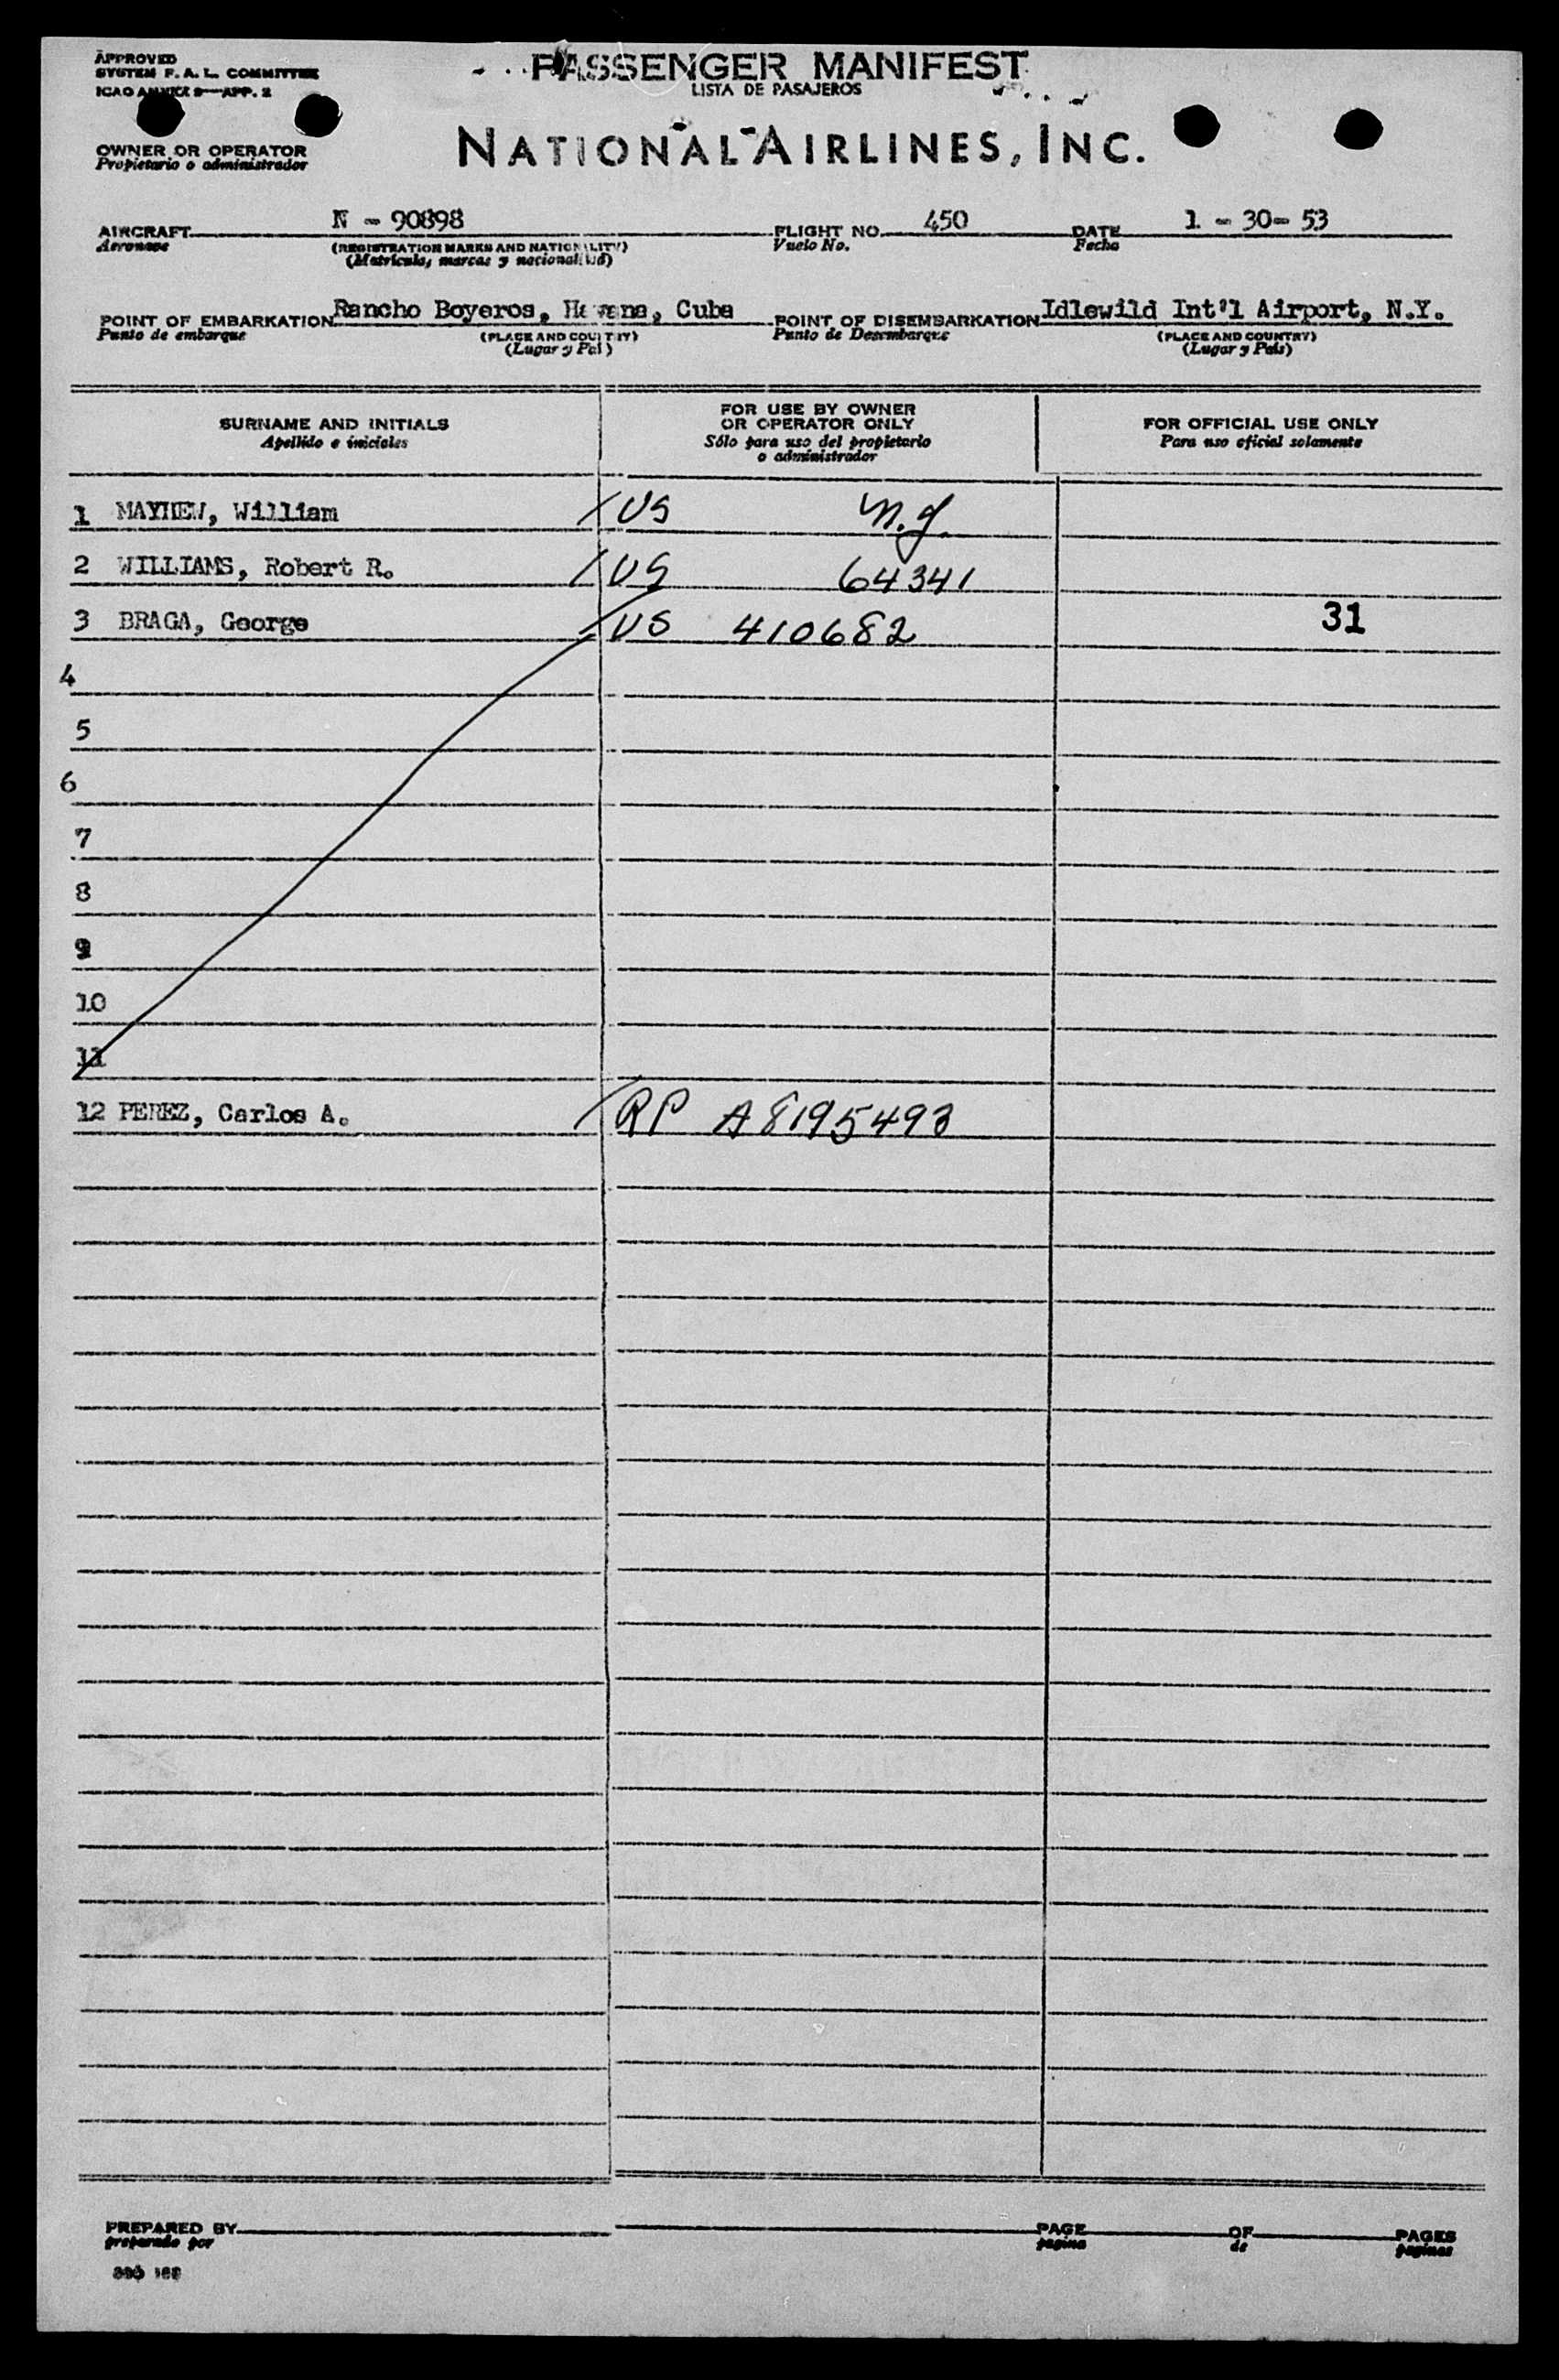 APPROVED
SYSTEM F. A. L. COMMITTEE
ICAO ANNEX 9—APP. 2
PASSENGER MANIFEST
LISTA DE PASAJEROS
OWNER OR OPERATOR
Propietario o administrador
NATIONAL AIRLINES, INC.
AIRCRAFT N - 90898 FLIGHT NO. 450 DATE 1 - 30- 53
Aeronave (REGISTRATION MARKS AND NATIONALITY) Vuelo No. Fecha
(Matricula, marcas y nacionalidad)
POINT OF EMBARKATION Rancho Boyeros, Havana, Cuba POINT OF DISEMBARKATION Idlewild Int'l Airport, N.Y.
Punto de embarque (PLACE AND COUNTRY) Punto de Desembarque (PLACE AND COUNTRY)
(Lugar y Pais) (Lugar y Pais)
SURNAME AND INITIALS FOR USE BY OWNER OR OPERATOR ONLY FOR OFFICIAL USE ONLY
Apellido e iniciales Sólo para uso del propietario o administrador Para uso oficial solamente
1 MAYHEW, William / US N.J.
2 WILLIAMS, Robert R. / US 64341
3 BRAGA, George / US 410682 31
4
5
6
7
8
9
10
11
12 PEREZ, Carlos A. / RP A8195493
PREPARED BY PAGE OF PAGES
preparado por pagina de paginas